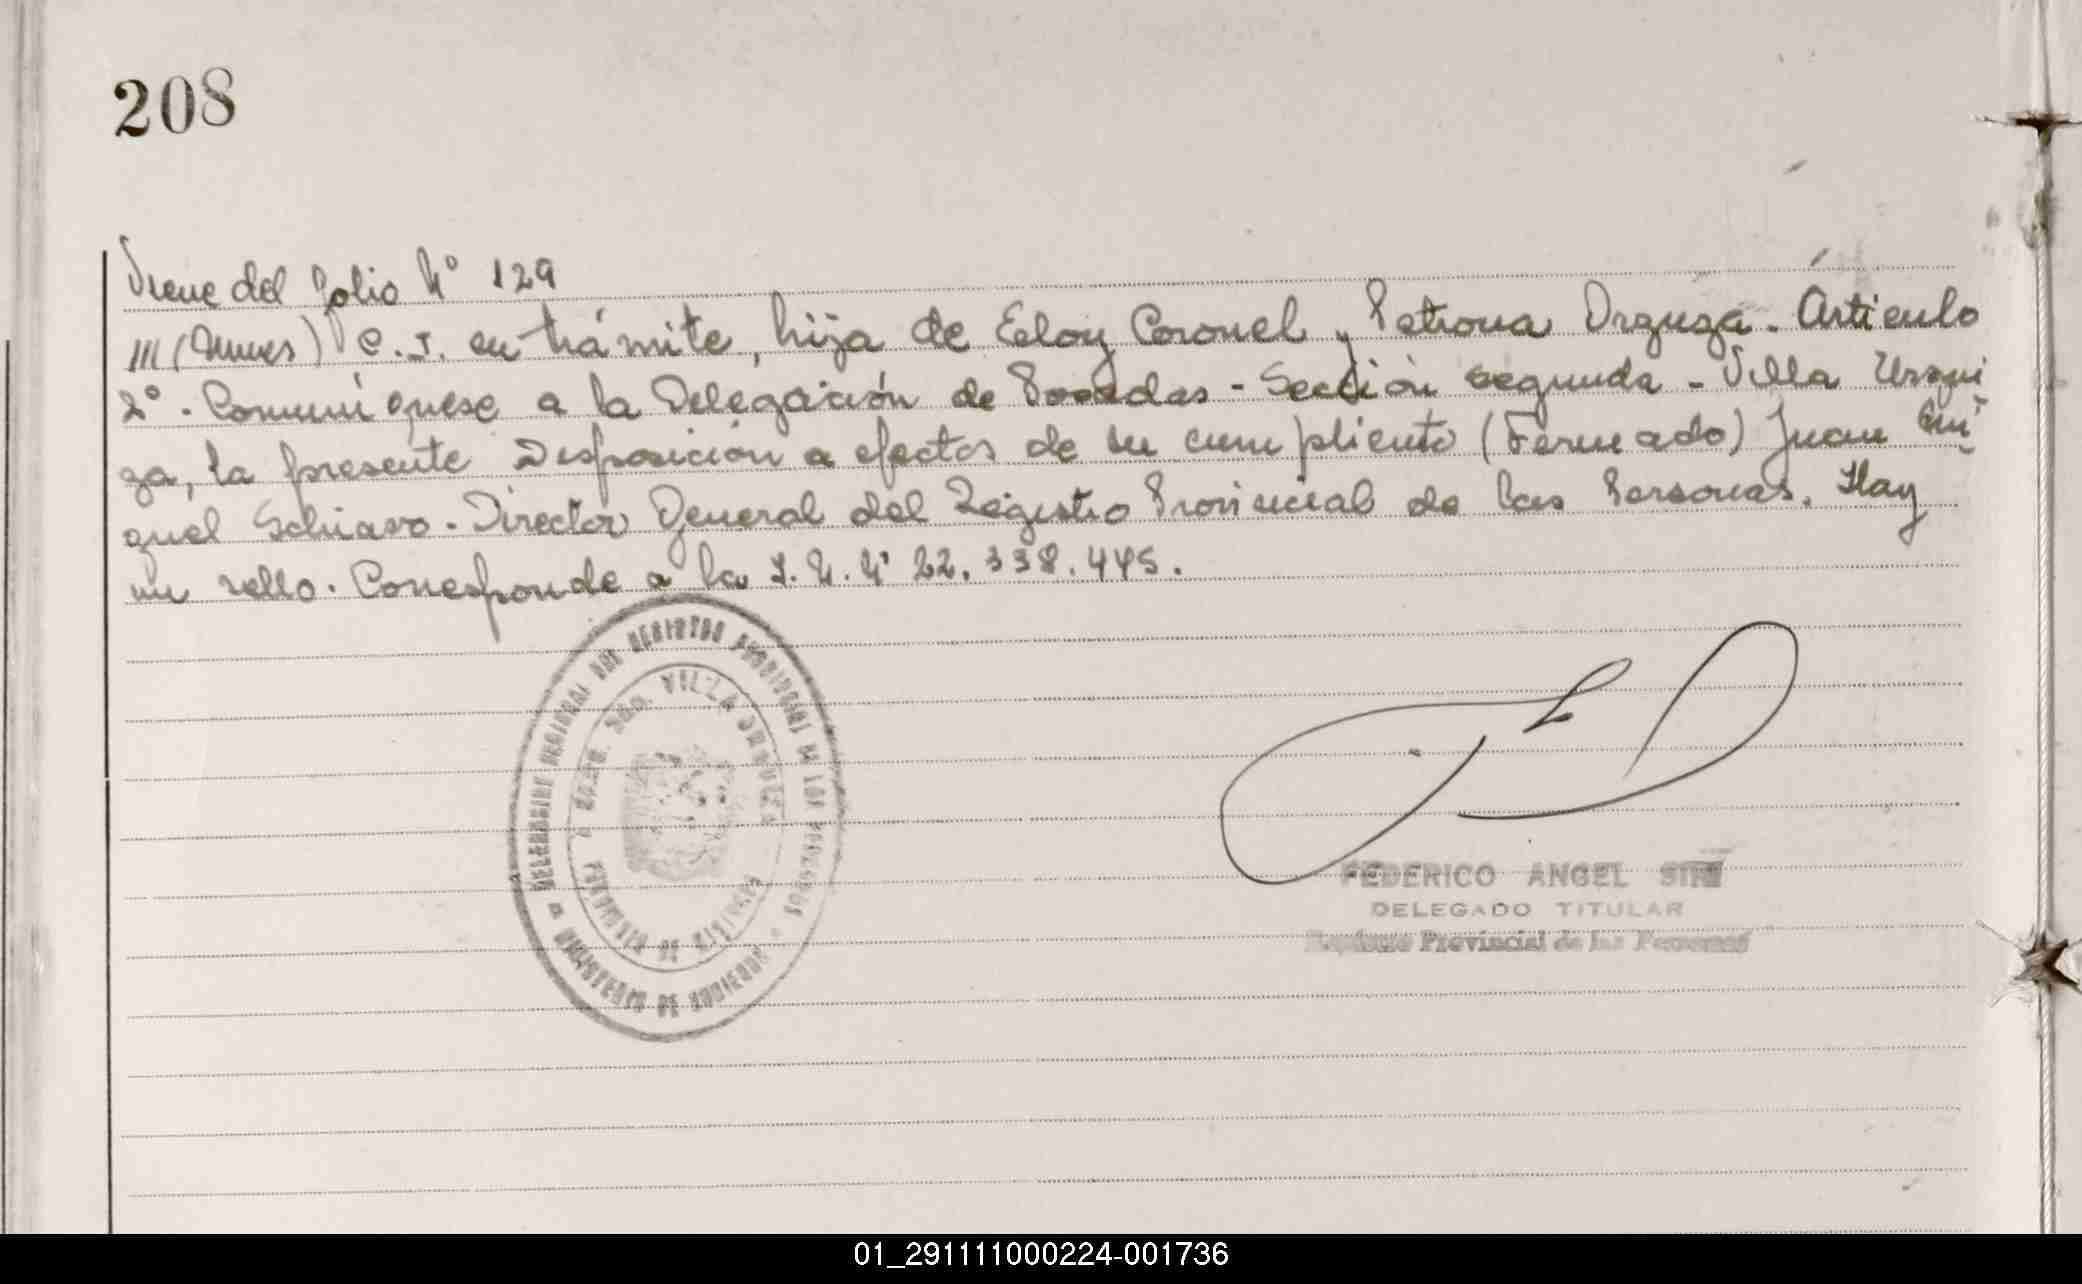 208
Viene del folio Nº 129
III (Nunes) C.I. en trámite, hija de Eeloy Coronel y Petrona Orzuza. Artículo
2º. Comuníquese a la Delegación de Posadas - Sección segunda - Villa Urqui
za, la presente Disposición a efectos de su cumpliento (Fermado) Juan Mi
guel Schiavo. Director General del Registro Provincial de las Personas. Hay
un sello. Corresponde a la I. N. Nº 22.338.445.
DELEGACION REGIONAL DEL REGISTRO PROVINCIAL DE LAS PERSONAS
MINISTERIO DE GOBIERNO
VILLA URQUIZA
PROVINCIA DE MISIONES
FEDERICO ANGEL
DELEGADO TITULAR
Registro Provincial de las Personas
01_291111000224-001736